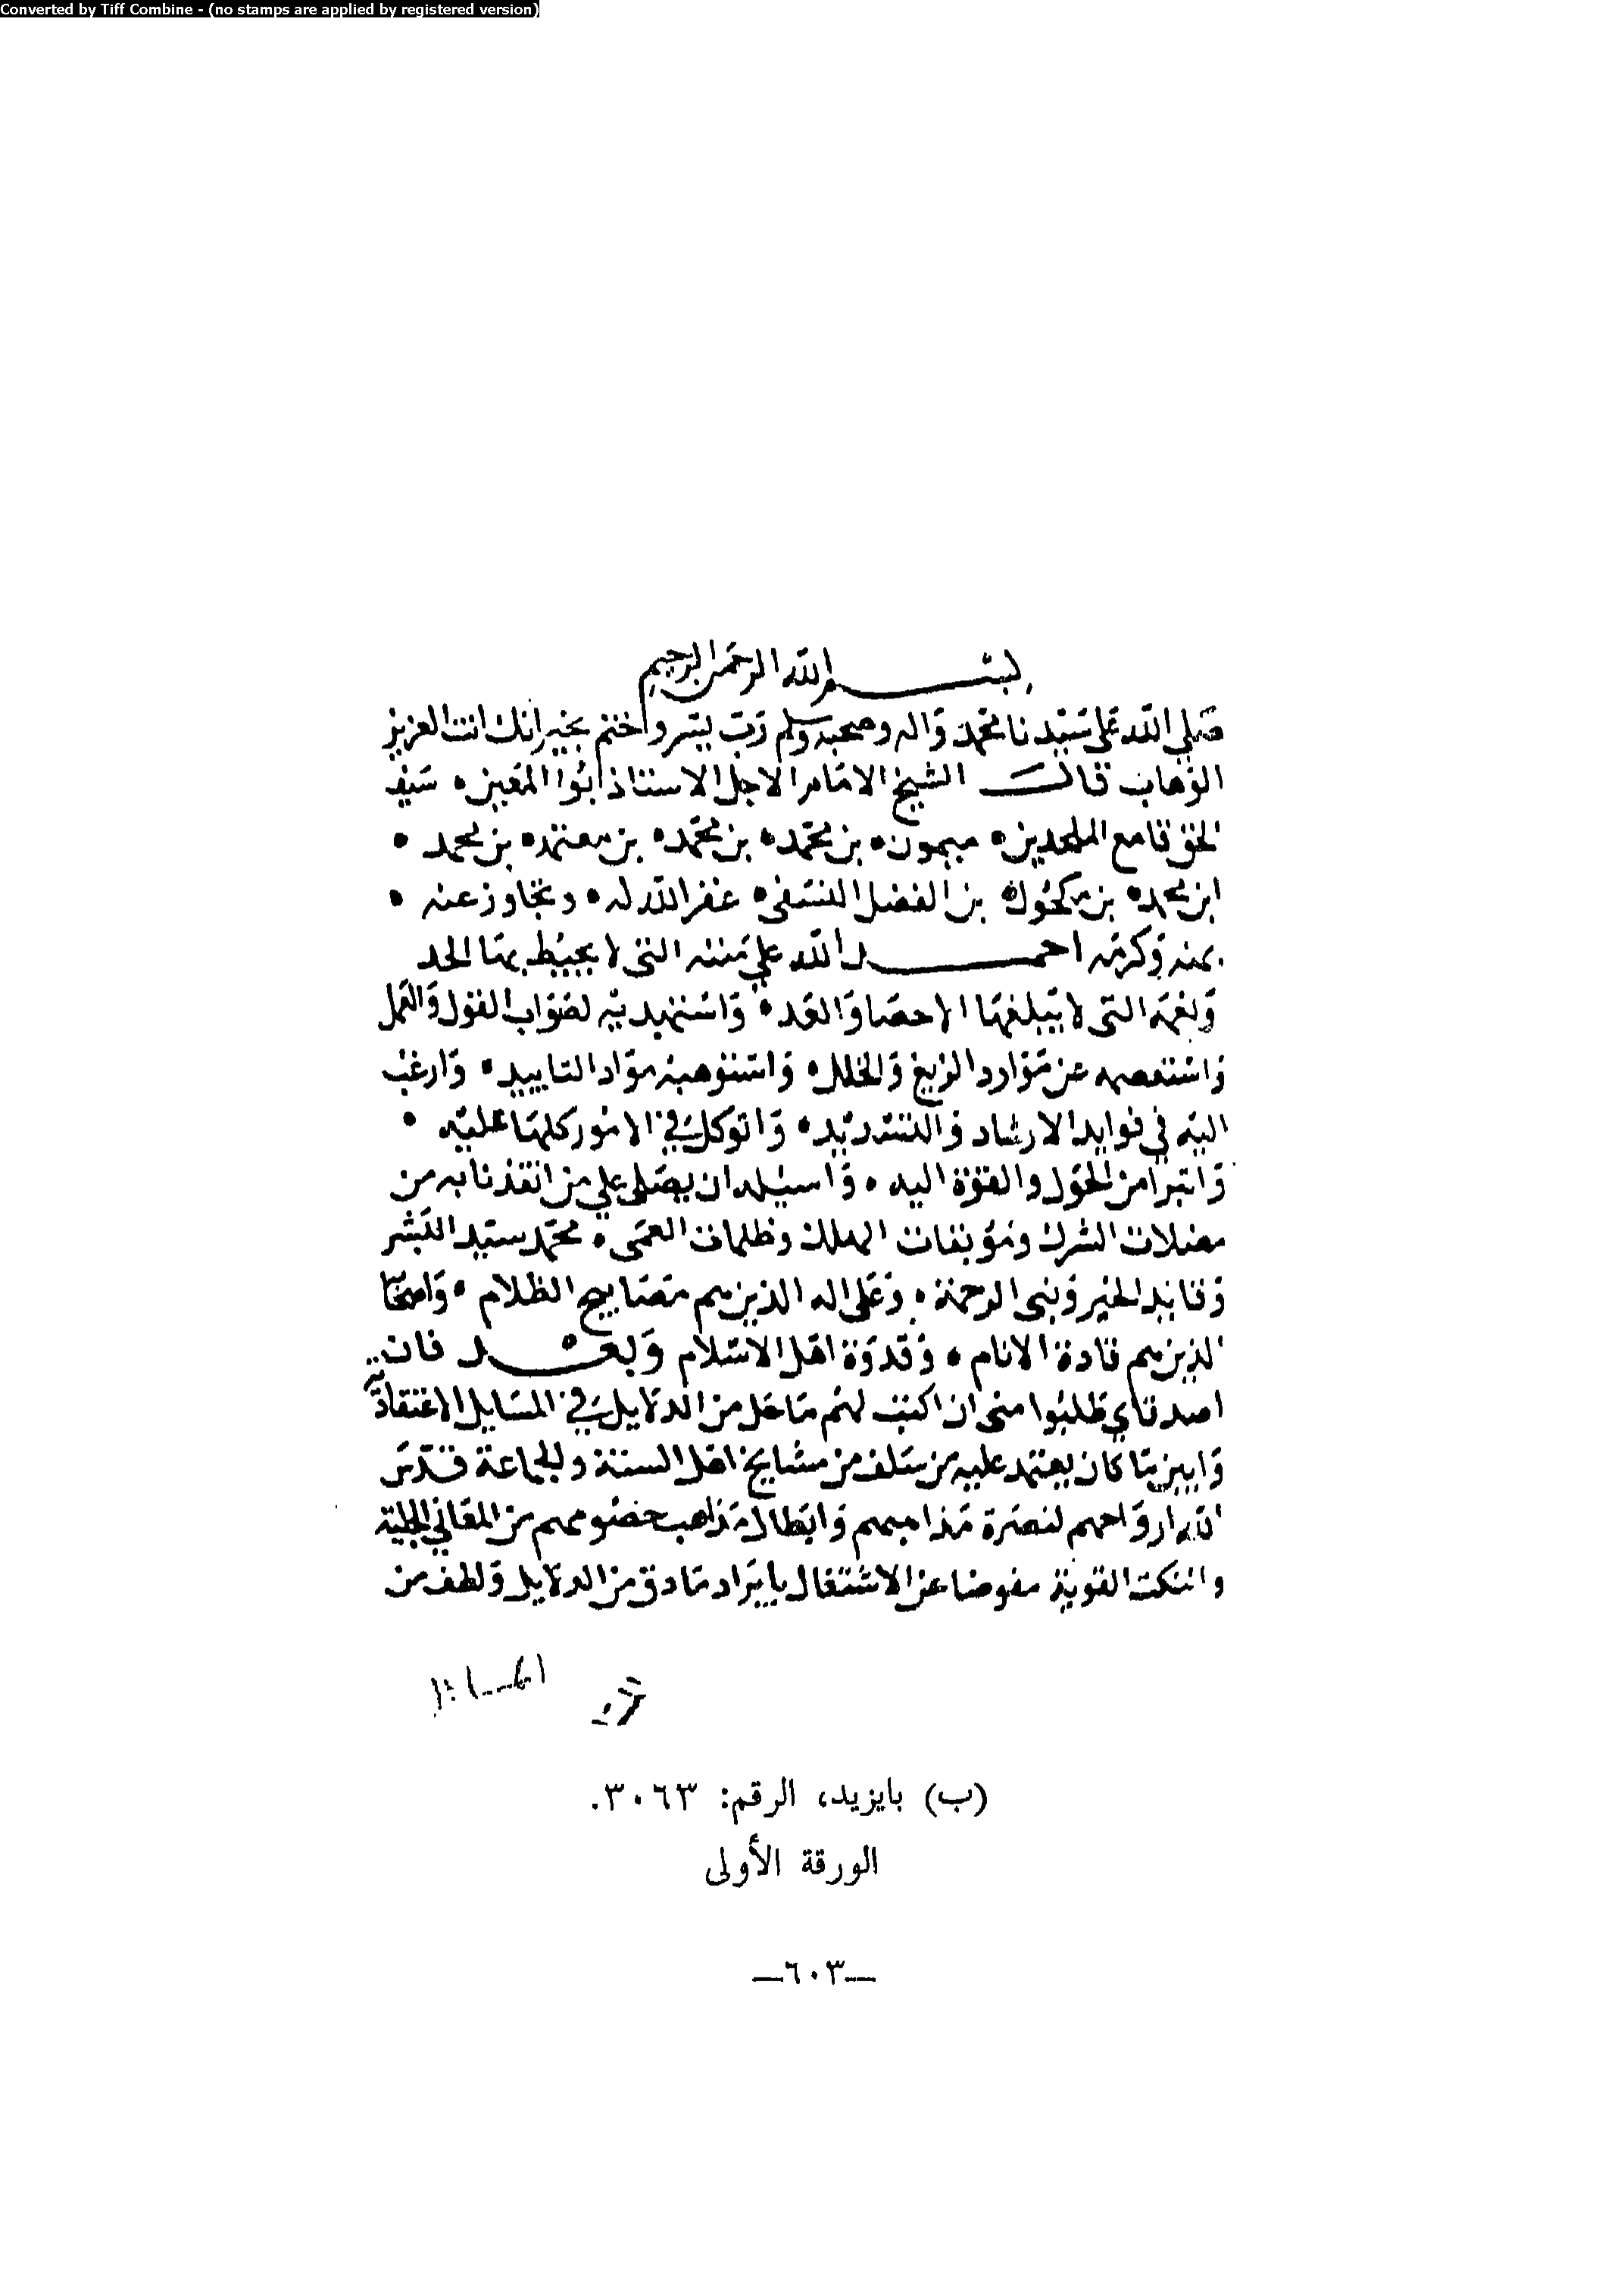 Converted by Tiff Combine - (no stamps are applied by registered version)
بسم الله الرحمن الرحيم
صلي الله على سيدنا محمد واله وصحبه وسلم رب يسر واختم بخير انك انت العزيز
الوهاب قال الشيخ الامام الاجل الاستاذ ابوا المعين • سيف
الحق قامع الملحدين • ميمون • بن محمد • بن محمد • بن معتمد • بن محمد •
ابن محمد • بن مكحول • بن الفضل النسفى • غفر الله له • وتجاوز عنه •
بمنه وكرمه احمد الله علي مننه التى لا يحيط بها الحد
ونعمه التى لا يبلغها الاحصا والعد • واستهديه لصواب القول والعمل
واستعصمه عن موارد الزيغ والخلل • واستوهبه مواد التاييد • وارغب
اليه في فوايد الارشاد والتسديد • واتوكل في الامور كلها عليه •
واتبرا من الحول والقوة اليه • واسئله ان يصلى علي من انقذنا به من
مضلات الشرك وموبقات الهلك وظلمات العمى • محمد سيد البشر
وقايد الخير ونبى الرحمة • وعلى اله الذين هم مصابيح الظلام • واصحابه
الذين هم قادة الانام • وقدوة اهل الاسلام وبعد فان
اصدقاي طلبوا منى ان اكتب لهم ما جل من الدلايل في المسايل الاعتقادية
وابين ما كان يعتمد عليه من سلف من مشايخ اهل السنة والجماعة قدس
الله ارواحهم لنصرة مذاهبهم وابطال مذاهب خصومهم من المعاني الجلية
والنكت القوية مفوضا عن الاشتغال بايراد ما دق من الدلايل ولطف من
(ب) بايزيد، الرقم: ٣٠٦٣.
الورقة الأولى
—٦٠٣—